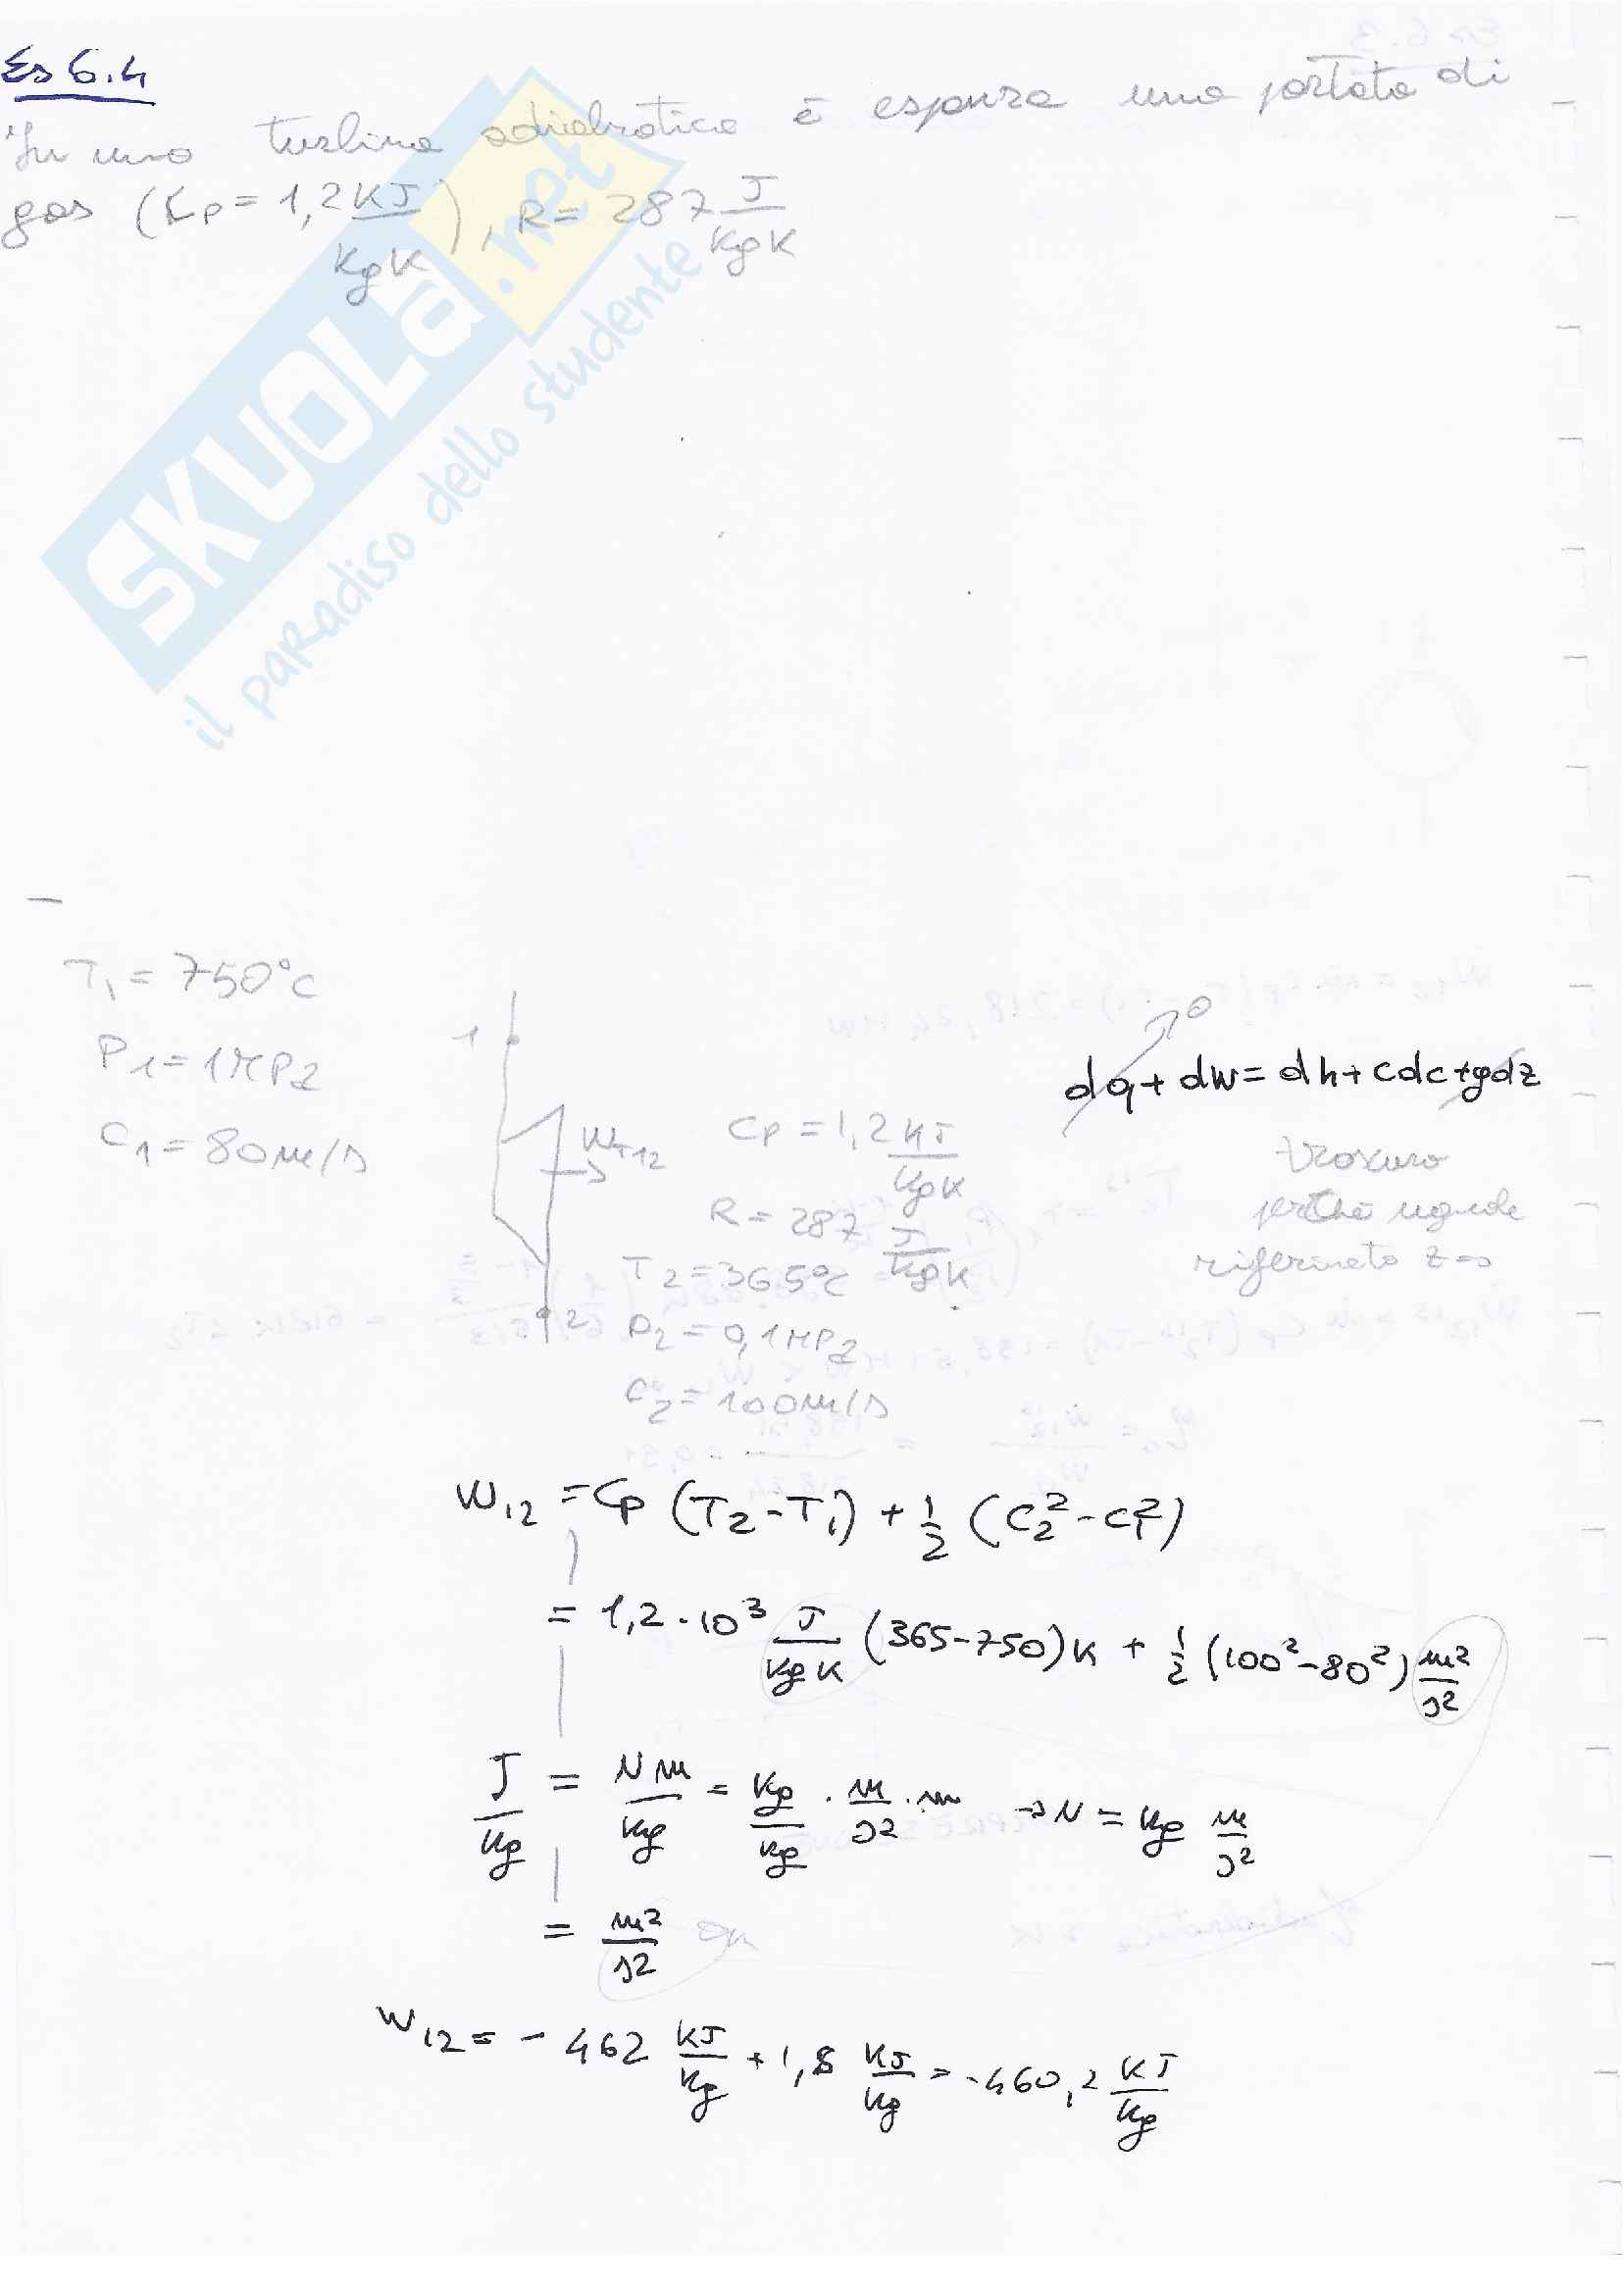 Es 6.4
In una turbina adiabatica è espansa una portata di
gas (Cp = 1,2 KJ/KgK), R = 287 J/KgK
SKUOLA.net
il paradiso dello studente
T1 = 750°C
P1 = 1MPa
C1 = 80m/s
1
WT12
2
Cp = 1,2 KJ/KgK
R = 287 J/KgK
T2 = 365°C
P2 = 0,1MPa
C2 = 100m/s
0
dq + dw = dh + cdc + gdz
trascuro
perché
riferimento
W12 = Cp (T2-T1) + 1/2 (C2²-C1²)
= 1,2·10³ J/KgK (365-750)K + 1/2 (100²-80²) m²/s²
J/Kg = Nm/Kg = Kg/Kg · m/s² · m → N = Kg m/s²
= m²/s² OK
W12 = - 462 KJ/Kg + 1,8 KJ/Kg = -460,2 KJ/Kg